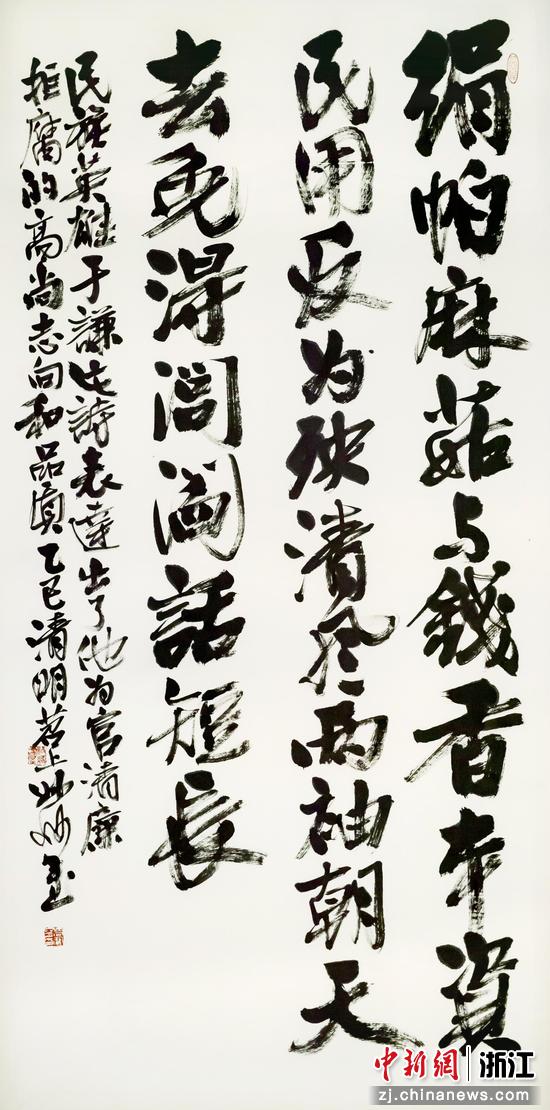 絹帕麻菇与錢香本資
民用反为殃清风两袖朝天
去免得閭閻話短長
民族英雄于謙此詩表達出了他为官清廉
拒腐的高尚志向和品质乙巳清明苕上
中新網 浙江
zj.chinanews.com.cn